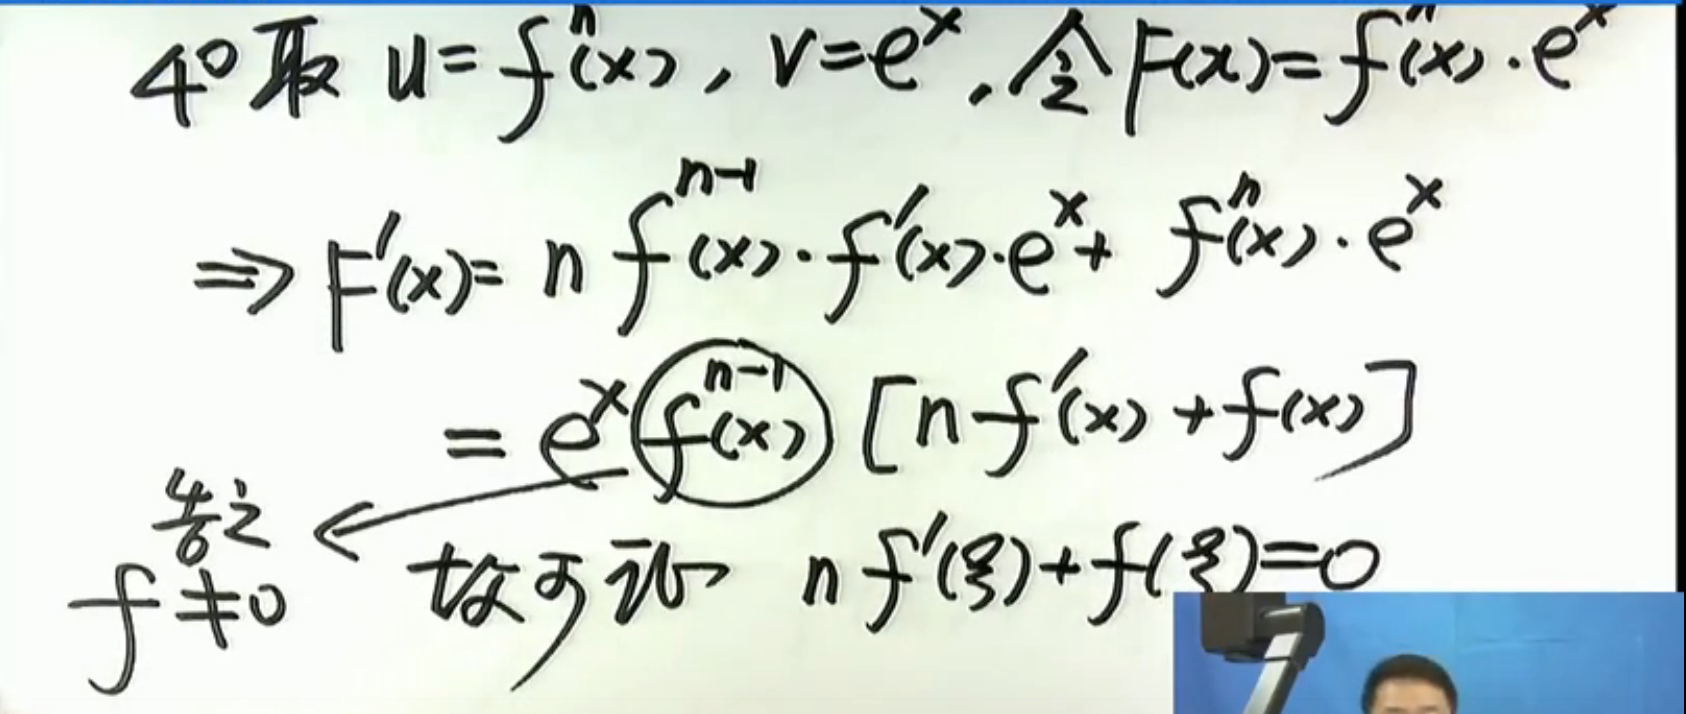 4° 取 u=fⁿ(x), v=eˣ, 令F(x)=fⁿ(x)·eˣ
⇒ F'(x)= n fⁿ⁻¹(x)·f'(x)·eˣ+ fⁿ(x)·eˣ
= eˣ fⁿ⁻¹(x) [n f'(x)+f(x)]
f≠0
故可证 n f'(ξ)+f(ξ)=0